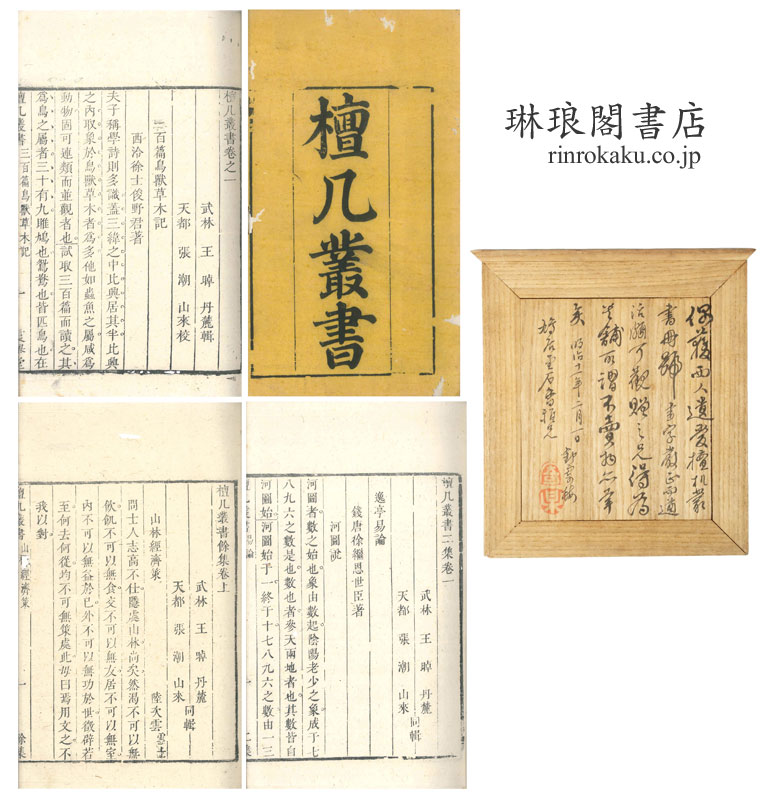 檀几叢書
琳琅閣書店
rinrokaku.co.jp
檀几叢書卷之一
武林 王晫 丹麓輯
天都 張潮 山來校
三百篇鳥獸草木記
西泠徐士俊野君著
夫子稱學詩則多識蓋三緣之中比興居其半比興
之內取象於鳥獸草木者為多他如蟲魚之屬咸為
動物固可連類而並觀者也試取三百篇而讀之其
為鳥之屬者三十有九雎鳩也鴛鴦也皆匹鳥也在
檀几叢書 三百篇鳥獸草木記 一
檀几叢書餘集卷上
武林 王晫 丹麓
天都 張潮 山來 同輯
山林經濟策
陸次雲雲士
問士人志高不仕隱處山林尚矣然渴不可以無
飲飢不可以無食交不可以無友居不可以無室
內不可以無益於已外不可以無功於世徵辟若
至何去何從均不可無策處此毋曰焉用文之不
我以對
檀几叢書 山林經濟策 一 餘集
檀几叢書二集卷一
武林 王晫 丹麓
天都 張潮 山來 同輯
逸亭易論
錢唐徐繼恩世臣著
河圖說
河圖者數之始也象由數起陰陽老少之象成于七
八九六之數是也數也者參天兩地者也其數皆自
河圖始河圖始于一終于十七八九六之數由一三
偶獲西人遺愛檀几叢
書冊
明治十一年二月一日